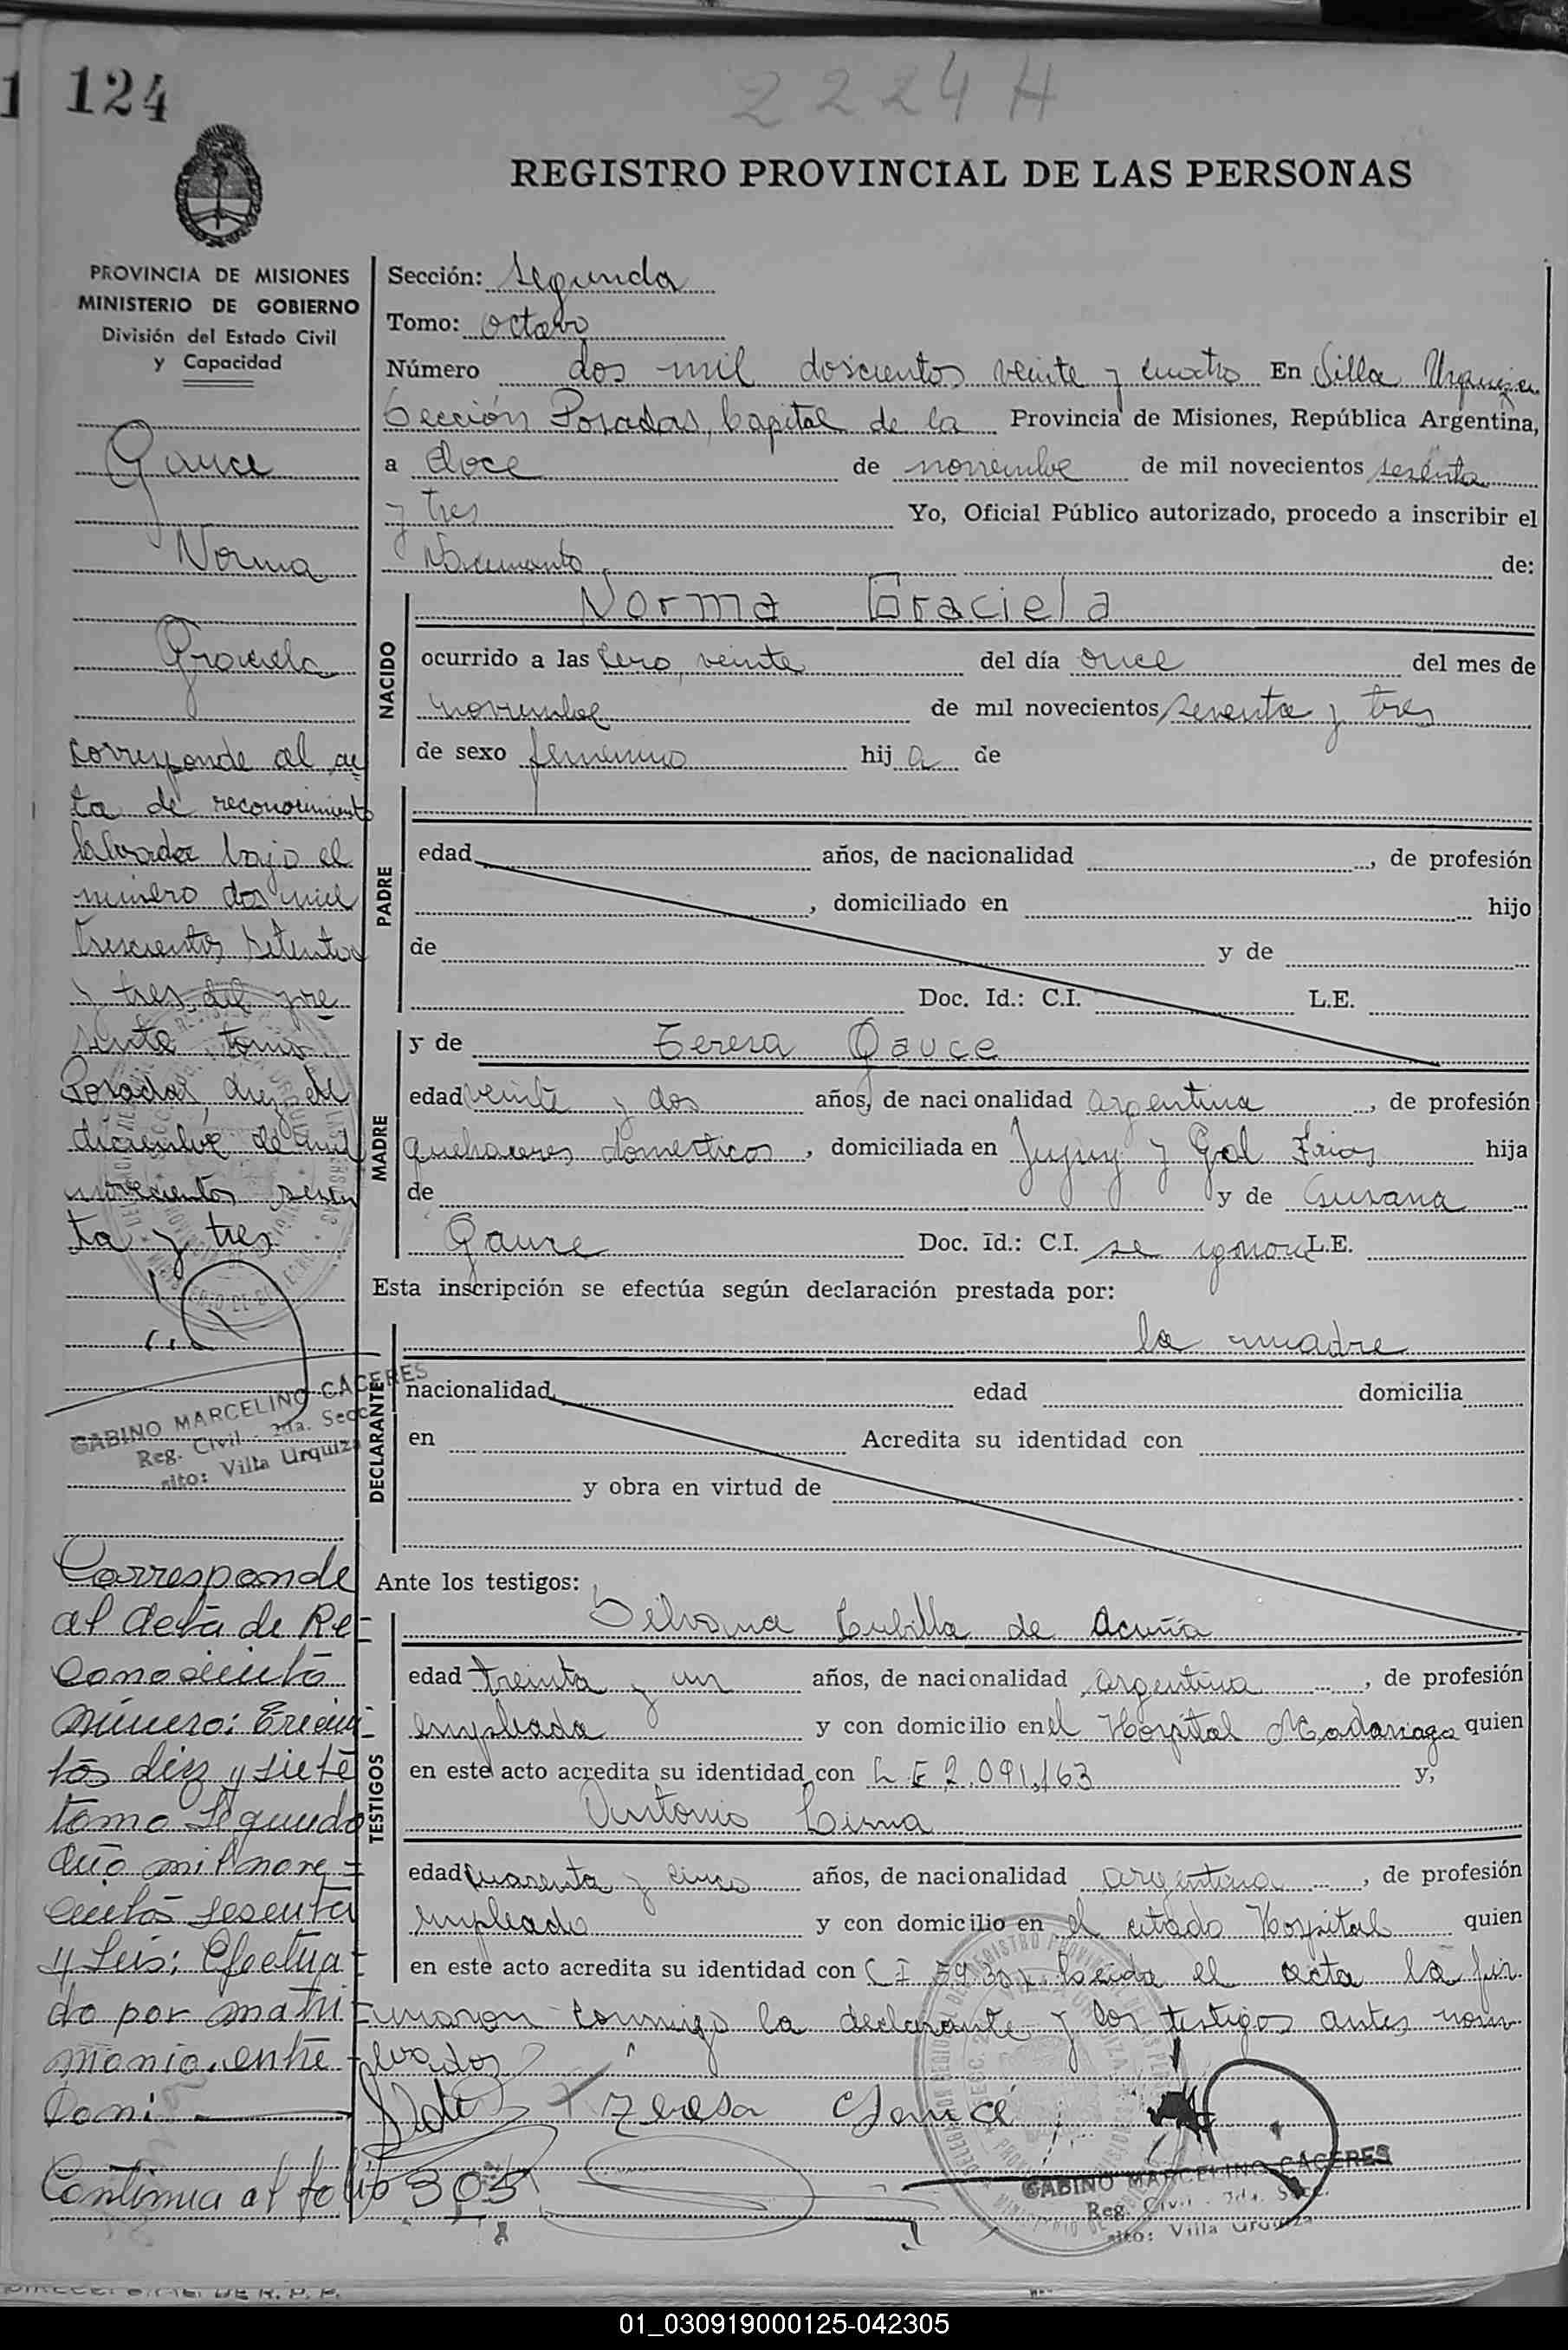 124
2224 H
REGISTRO PROVINCIAL DE LAS PERSONAS
PROVINCIA DE MISIONES
MINISTERIO DE GOBIERNO
División del Estado Civil
y Capacidad
Gauce
Norma
Graciela
corresponde al ac
ta de reconocimiento
labrada bajo el
número dos mil
trescientos setenta
y tres del pre
sente tomo
Posadas, diez de
diciembre de mil
novecientos sesen
ta y tres
GABINO MARCELINO CACERES
Reg. Civil - 2da. Secc.
sito: Villa Urquiza
Corresponde
al acta de Re=
conocimiento
número: trecien=
tos diez y siete
tomo segundo
año mil nove=
cientos sesenta
y seis; Efectua=
do por matri=
monio entre
Continua al folio 305
Sección: Segunda
Tomo: octavo
Número dos mil doscientos veinte y cuatro En Villa Urquiza
Sección Posadas, Capital de la Provincia de Misiones, República Argentina,
a doce de noviembre de mil novecientos sesenta
y tres Yo, Oficial Público autorizado, procedo a inscribir el
Nacimiento de:
NACIDO
Norma Graciela
ocurrido a las cero veinte del día once del mes de
noviembre de mil novecientos sesenta y tres
de sexo femenino hij a de
PADRE
edad años, de nacionalidad , de profesión
, domiciliado en hijo
de y de
Doc. Id.: C.I. L.E.
MADRE
y de Teresa Gauce
edad veinte y dos años, de nacionalidad argentina , de profesión
quehaceres domesticos , domiciliada en Jujuy y Gral Frias hija
de y de Susana
Gauce Doc. Id.: C.I. se ignora L.E.
Esta inscripción se efectúa según declaración prestada por:
DECLARANTE
la madre
nacionalidad edad domicilia
en Acredita su identidad con
y obra en virtud de
Ante los testigos:
TESTIGOS
Silvana Cubilla de Acuña
edad treinta y un años, de nacionalidad argentina , de profesión
empleada y con domicilio en el Hospital Madariaga quien
en este acto acredita su identidad con L E 2.091.163 y,
Antonio Cima
edad cuarenta y cinco años, de nacionalidad argentina , de profesión
empleado y con domicilio en el citado Hospital quien
en este acto acredita su identidad con C I leida el acta la fir
maron conmigo la declarante y los testigos antes nom
brados
Teresa Gauce
GABINO MARCELINO CACERES
Reg. Civil - 2da. Secc.
sito: Villa Urquiza
01_030919000125-042305